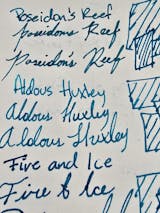 Poseidon's Reef
Poseidons Reef
Poseidon's Reef
Aldous Huxley
Aldous Huxley
Aldous Huxley
Fire and Ice
Fire & Ice